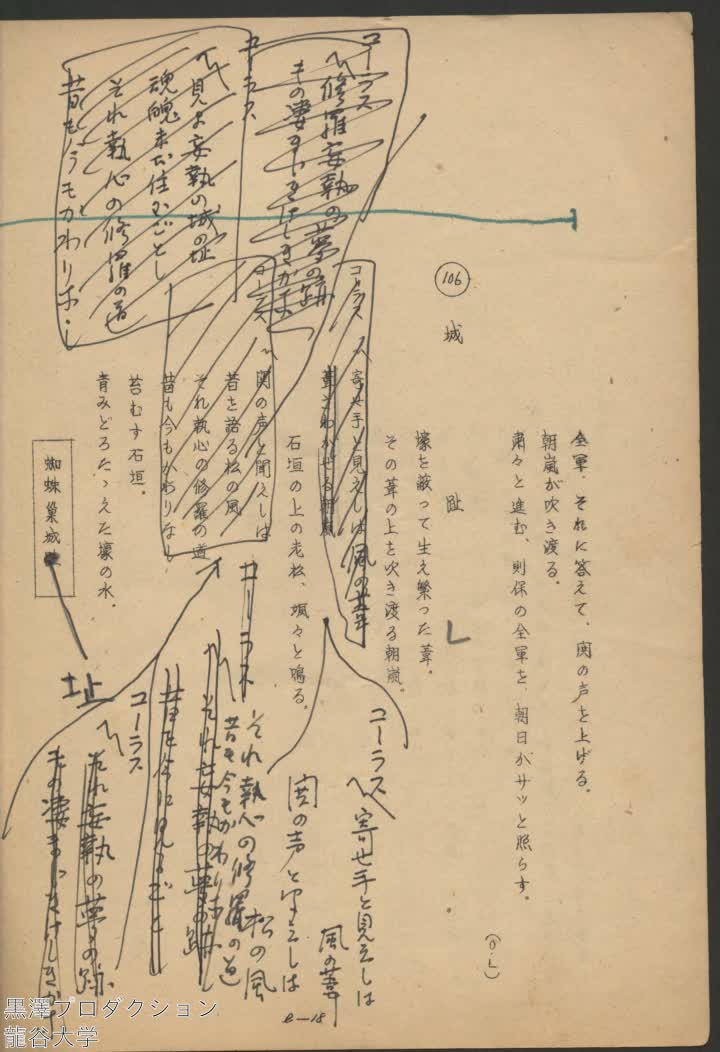 全軍、それに答えて、鬨の声を上げる。
朝嵐が吹き渡る。
粛々と進む、則保の全軍を、朝日がサッと照らす。
(O・L)
106
城 趾
壕を蔽って生え繁った葦。
その葦の上を吹き渡る朝嵐。
コーラス
〽寄せ手と見えしは風の葦
葦をわかせる朝嵐
石垣の上の老松、颯々と鳴る。
コーラス
〽鬨の声と聞えしは
昔を語る松の風
それ執心の修羅の道
昔も今もかわりなし
苔むす石垣。
青みどろたゝえた壕の水。
蜘蛛巣城
址
コーラス
〽修羅妄執の夢の跡
その凄まじきけしきかな
コーラス
〽見よ妄執の城の址
魂魄未だ住むごとし
それ執心の修羅の道
昔も今もかわりなし
コーラス
〽寄せ手と見えしは
風の葦
鬨の声と聞えしは
松の風
コーラス
それ執心の修羅の道
昔も今もかわりなし
〽それ妄執の夢の跡
昔を今に見るごと
コーラス
〽それ妄執の夢の跡
その凄まじきけしきかな
e—18
黒澤プロダクション
龍谷大学